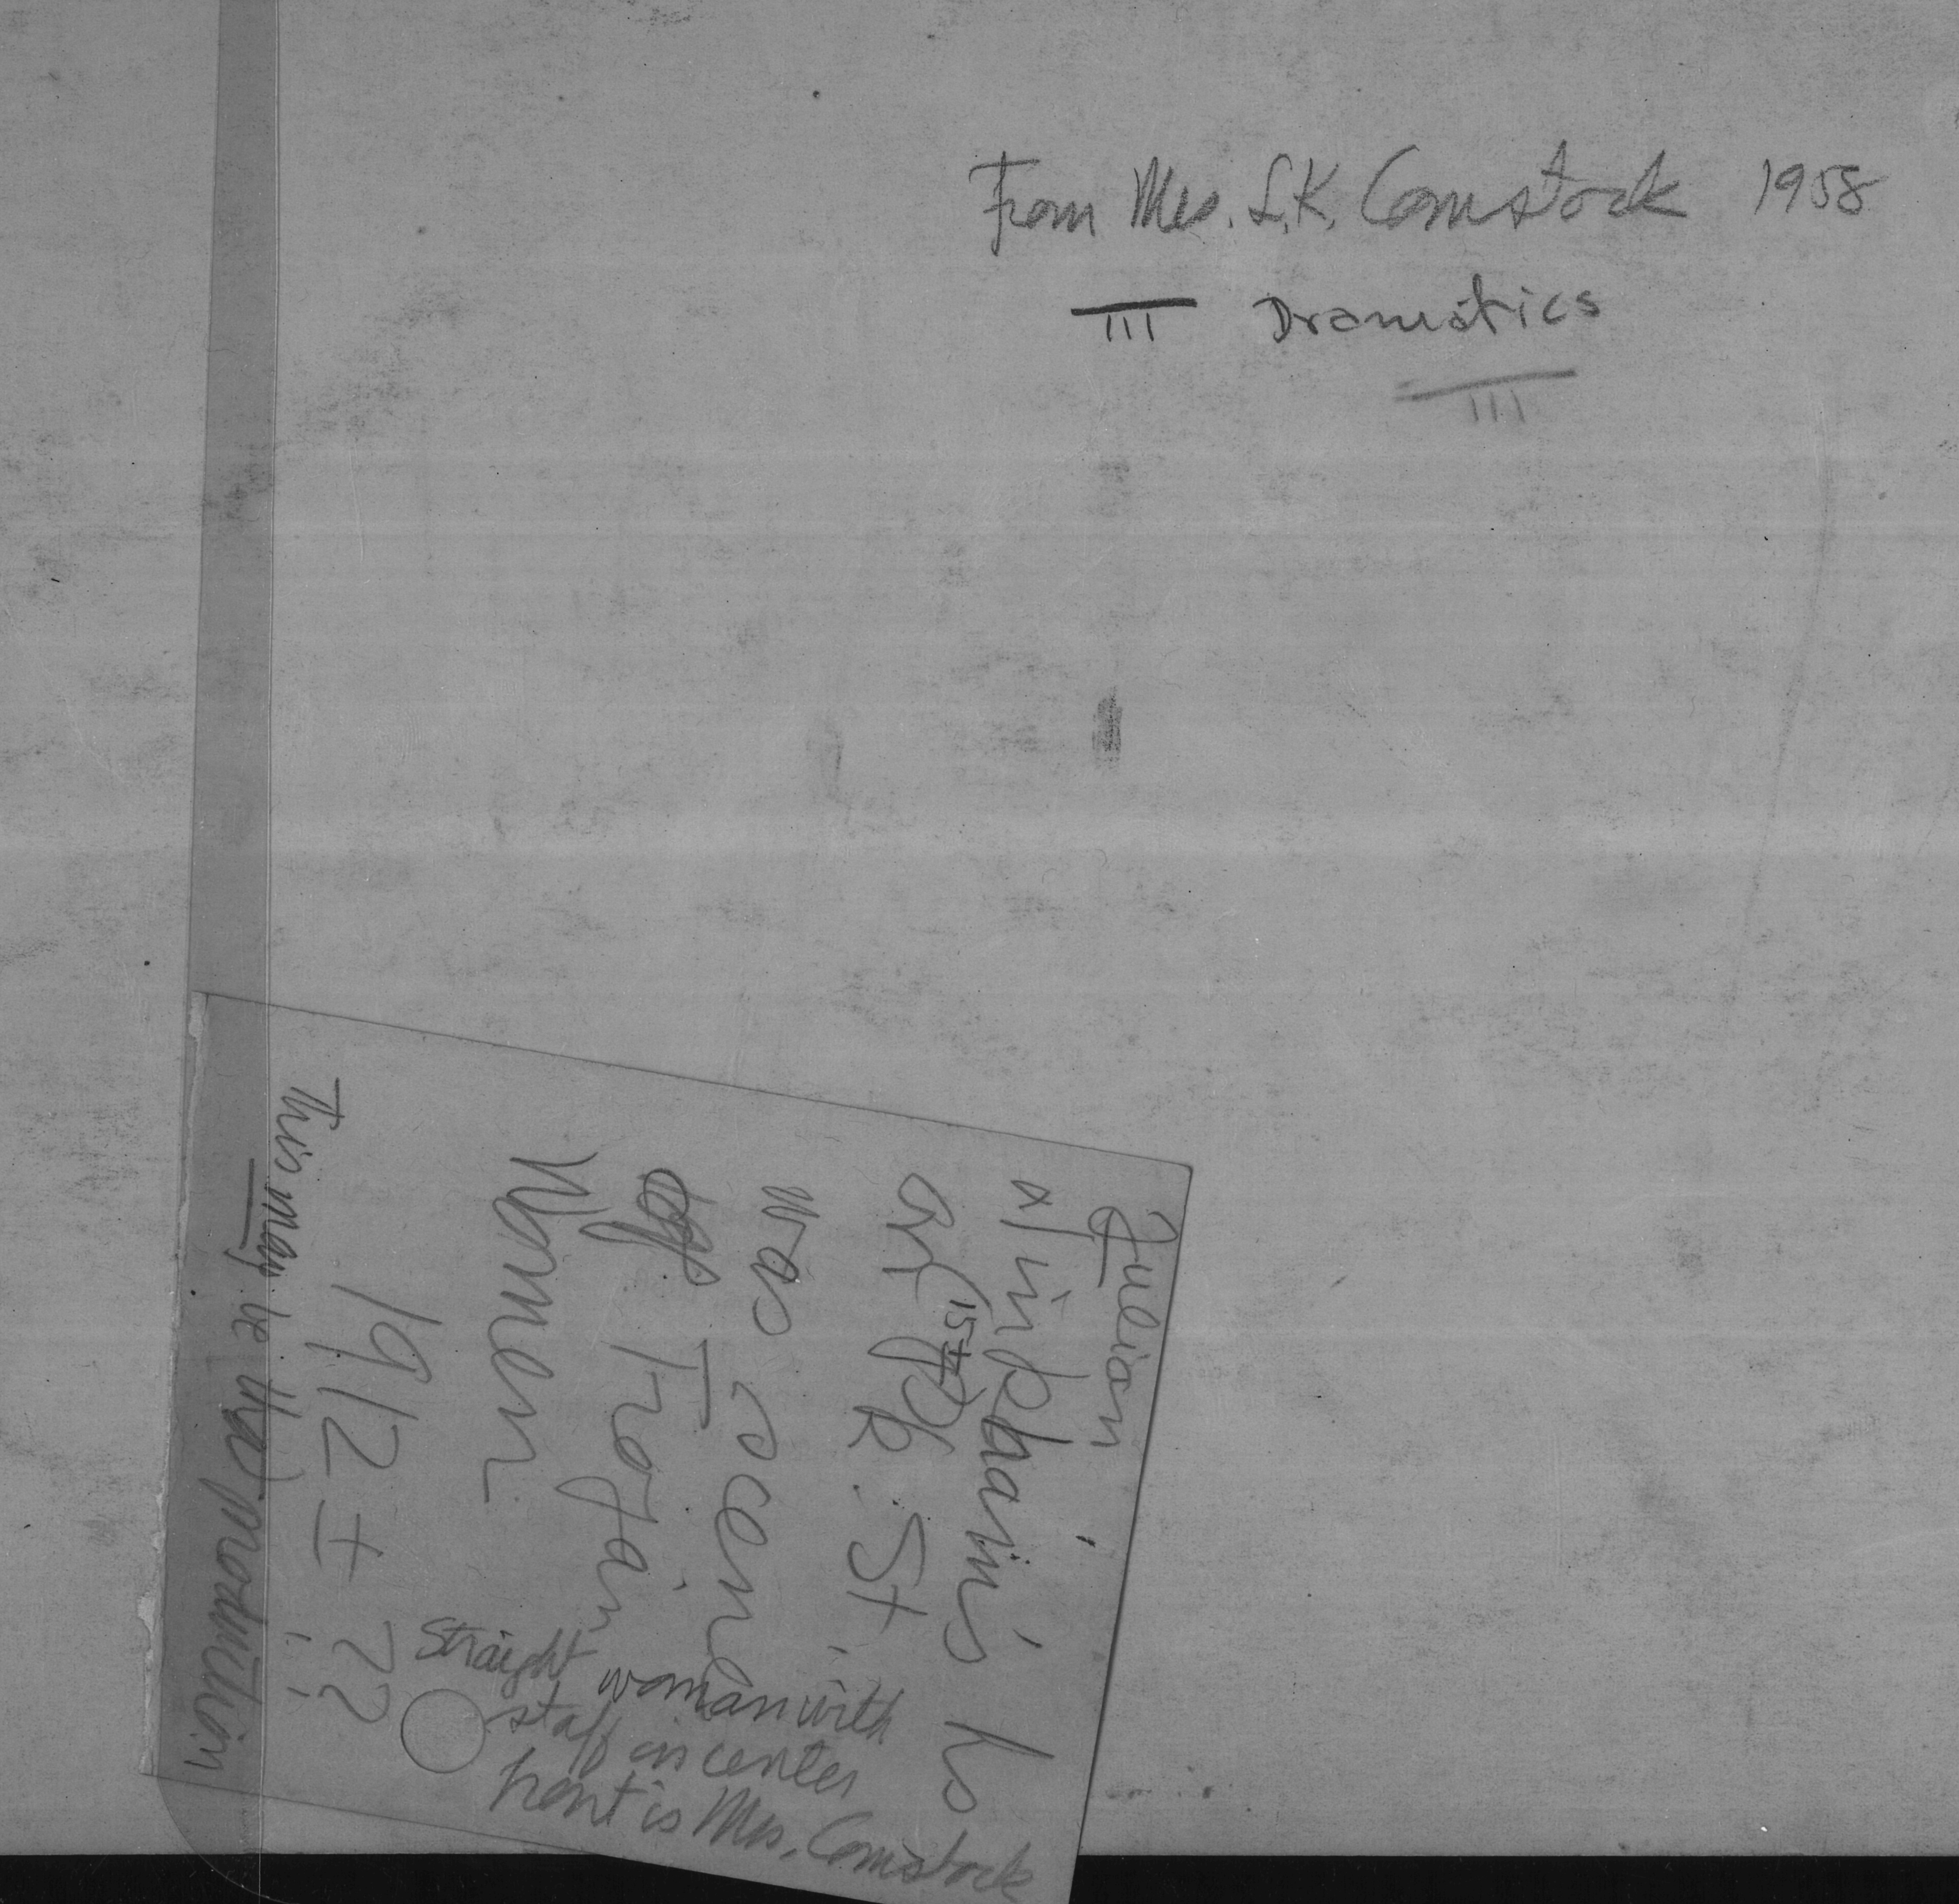 From Mrs. L.K. Comstock 1958
III Dramatics
III
Julian
ho
on (15±) R. St.
was scene
of Trojan
Women
1912 ± ??
This may be the production
Straight woman with
staff in center
front is Mrs. Comstock